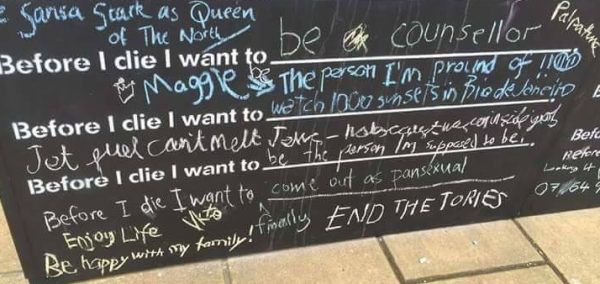 Sansa Stark as Queen
of The North
Palpatine
Before I die I want to be a counsellor
Maggie The person I'm proud of
watch 1000 sunsets in Rio de Janeiro
Before I die I want to
Jet fuel can't melt
Before I die I want to be the person I'm supposed to be.
Before I die I want to come out as pansexual
Before I die I want to finally END THE TORIES
Enjoy Life
Be happy with my family!